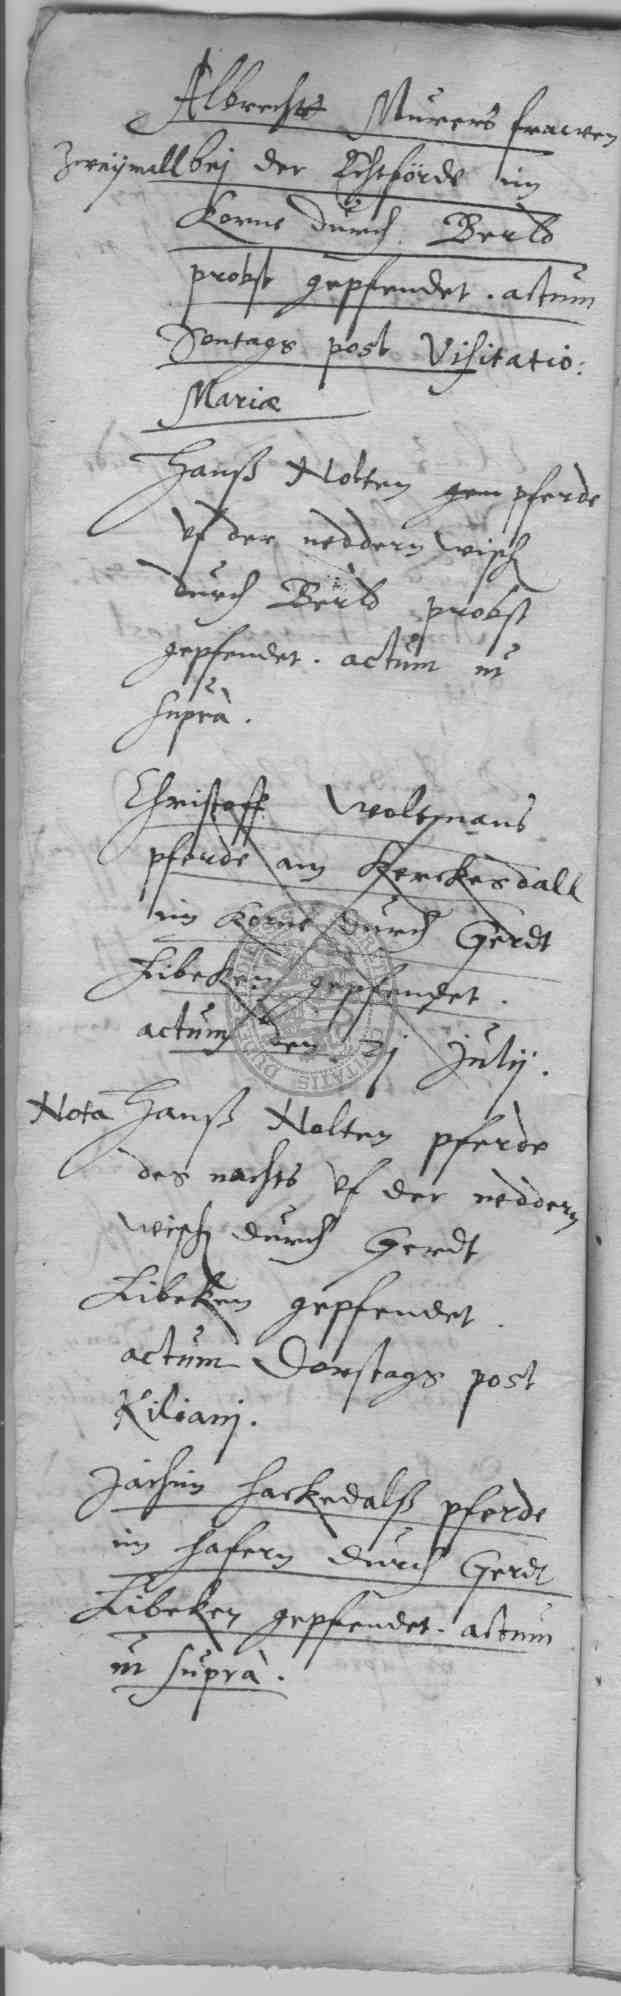 Albrechts Murers frawen
Zweymall bej der Echtförde im
Korne durch Berld
probst gepfendet. actum
Sontags post Visitatio:
Mariæ
Hanß Nolten pferde
vf der neddern wisch
durch Berld probst
gepfendet. actum ut
suprà.
Christoff Woltmans
pferde am Kerckesdall
im Korne durch Gerdt
Libeken gepfendet.
actum den 21 Julij.
Nota Hanß Nolten pferde
des nachts vf der neddern
wisch durch Gerdt
Libeken gepfendet.
actum Donstags post
Kiliani.
Jachim Hackedalß pferde
im hafern durch Gerdt
Libeken gepfendet. actum
ut suprà.